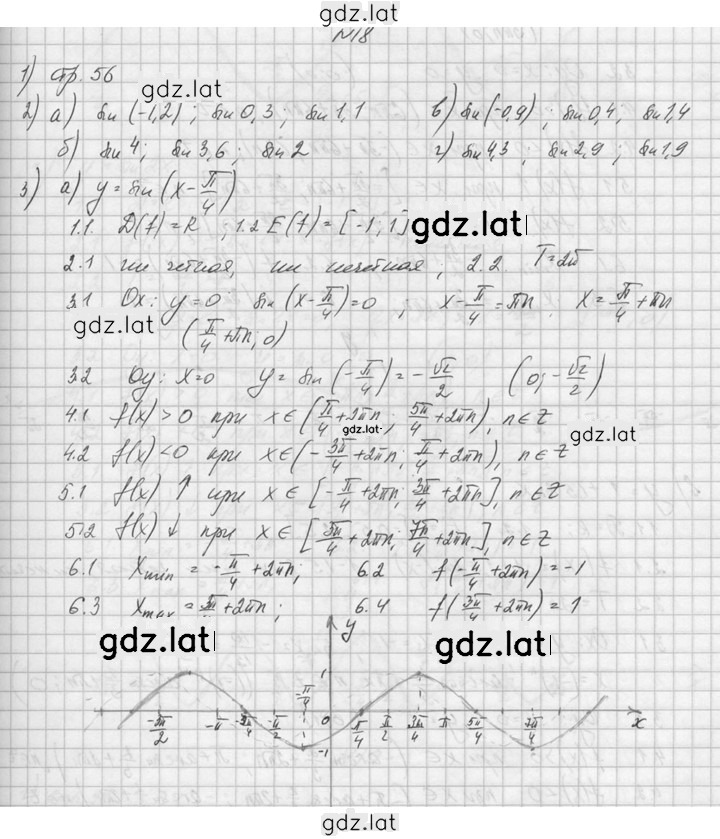 gdz.lat
№18
1) стр. 56
gdz.lat
2) а) sin (-1,2) ; sin 0,3 ; sin 1,1 в) sin (-0,9) ; sin 0,4 ; sin 1,4
б) sin 4 ; sin 3,6 ; sin 2 г) sin 4,3 ; sin 2,9 ; sin 1,9
3) а) y = sin (x - π/4)
1.1. D(f) = R ; 1.2 E(f) = [-1; 1] gdz.lat
2.1 ни четная, ни нечетная ; 2.2. T = 2π
3.1 Ox: y = 0 sin (x - π/4) = 0 ; x - π/4 = πn, x = π/4 + πn
gdz.lat (π/4 + πn; 0)
3.2 Oy: x = 0 y = sin (-π/4) = -√2/2 (0; -√2/2)
4.1 f(x) > 0 при x ∈ (π/4 + 2πn; 5π/4 + 2πn), n ∈ Z
gdz.lat gdz.lat
4.2 f(x) < 0 при x ∈ (-3π/4 + 2πn; π/4 + 2πn), n ∈ Z
5.1 f(x) ↑ при x ∈ [-π/4 + 2πn; 3π/4 + 2πn], n ∈ Z
5.2 f(x) ↓ при x ∈ [3π/4 + 2πn; 7π/4 + 2πn], n ∈ Z
6.1 Xmin = -π/4 + 2πn; 6.2 f(-π/4 + 2πn) = -1
6.3 Xmax = 3π/4 + 2πn; 6.4 f(3π/4 + 2πn) = 1
gdz.lat y gdz.lat
1
-π/4
-3π/2 -π -3π/4 -π/2 0 π/4 π/2 3π/4 π 5π/4 7π/4 x
-1
gdz.lat